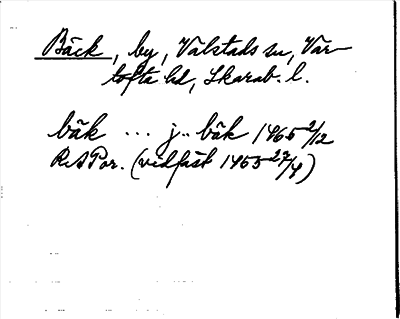 Bäck, by, Valstads sn, Var-
tofta hd, Skarab. l.
bäk ... j .. bäk 1465 2/12
RAPor. (vidfäst 1453 27/4)